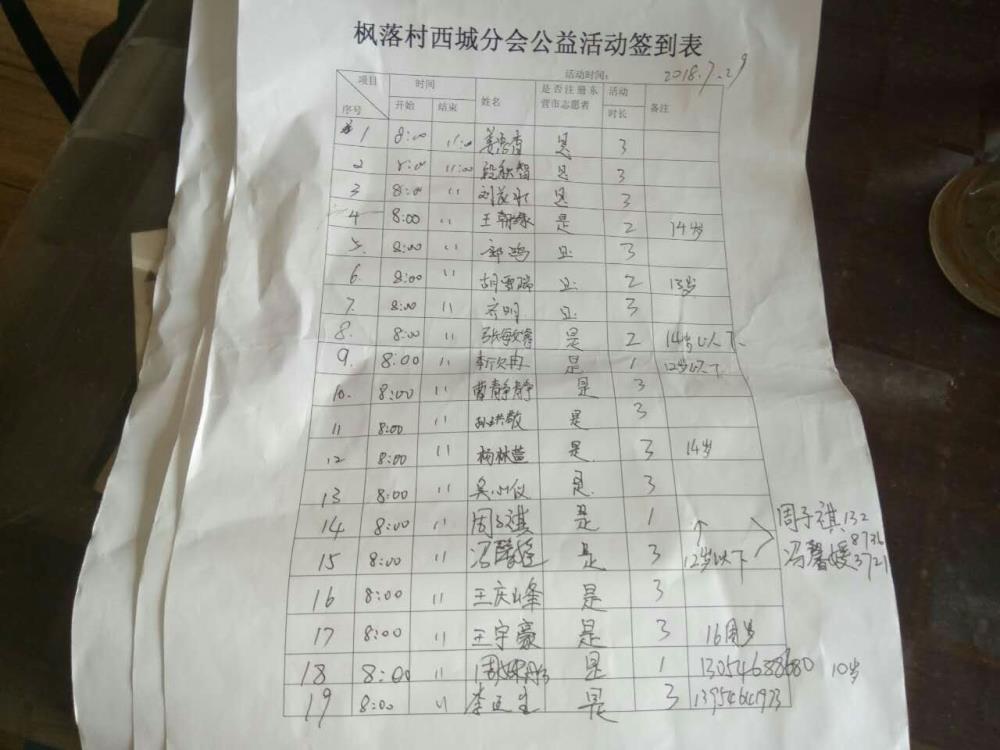 枫落村西城分会公益活动签到表
活动时间： 2018.7.29
项目 时间 姓名 是否注册东营市志愿者 活动时长 备注
序号 开始 结束
1 8:00 11:00 是 3
2 8:00 11:00 段秋智 是 3
3 8:00 11 是 3
4 8:00 11 王朝缘 是 2 14岁
5. 8:00 11 郭鸿 是 3
6. 8:00 11 胡雪瑞 是 2 13岁
7. 8:00 11 齐明 是 3
8. 8:00 11 张敏 是 2 14岁以下
9. 8:00 11 是 1 12岁以下
10. 8:00 11 曹静静 是 3
11 8:00 11 孙洪敬 是 3
12 8:00 11 杨林 是 3 14岁
13 8:00 11 吴小仪 是 3
14 8:00 11 周子祺 是 1 周子祺 132
15 8:00 11 冯馨媛 是 3 12岁以下 冯馨媛 8736 3721
16 8:00 11 王庆峰 是 3
17 8:00 11 王宇豪 是 3 16周岁
18 8:00 11 周 是 1 13054688680 10岁
19 8:00 11 李 生 是 3